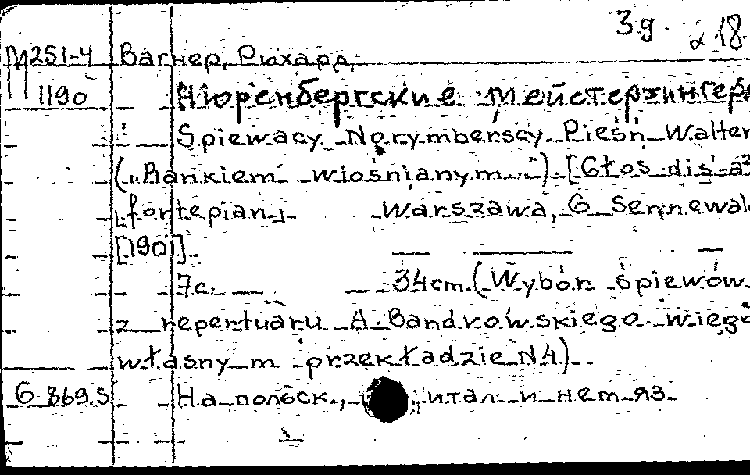 39. α 18.
М251-4 Вагнер, Рихард.
1190 Нюренбергские мейстерзингеры
Śpiewacy Norymberscy. Pieśń Walter
("Rankiem wiośnianym...") [Głos dis-a
fortepian]. Warszawa, G. Sennewal
[190].
7с. 34cm. (Wybór śpiewów
z repertuaru A. Bandrowskiego w jego
własnym przekładzie N4).
G 869.5 На польск., итал. и нем. яз.